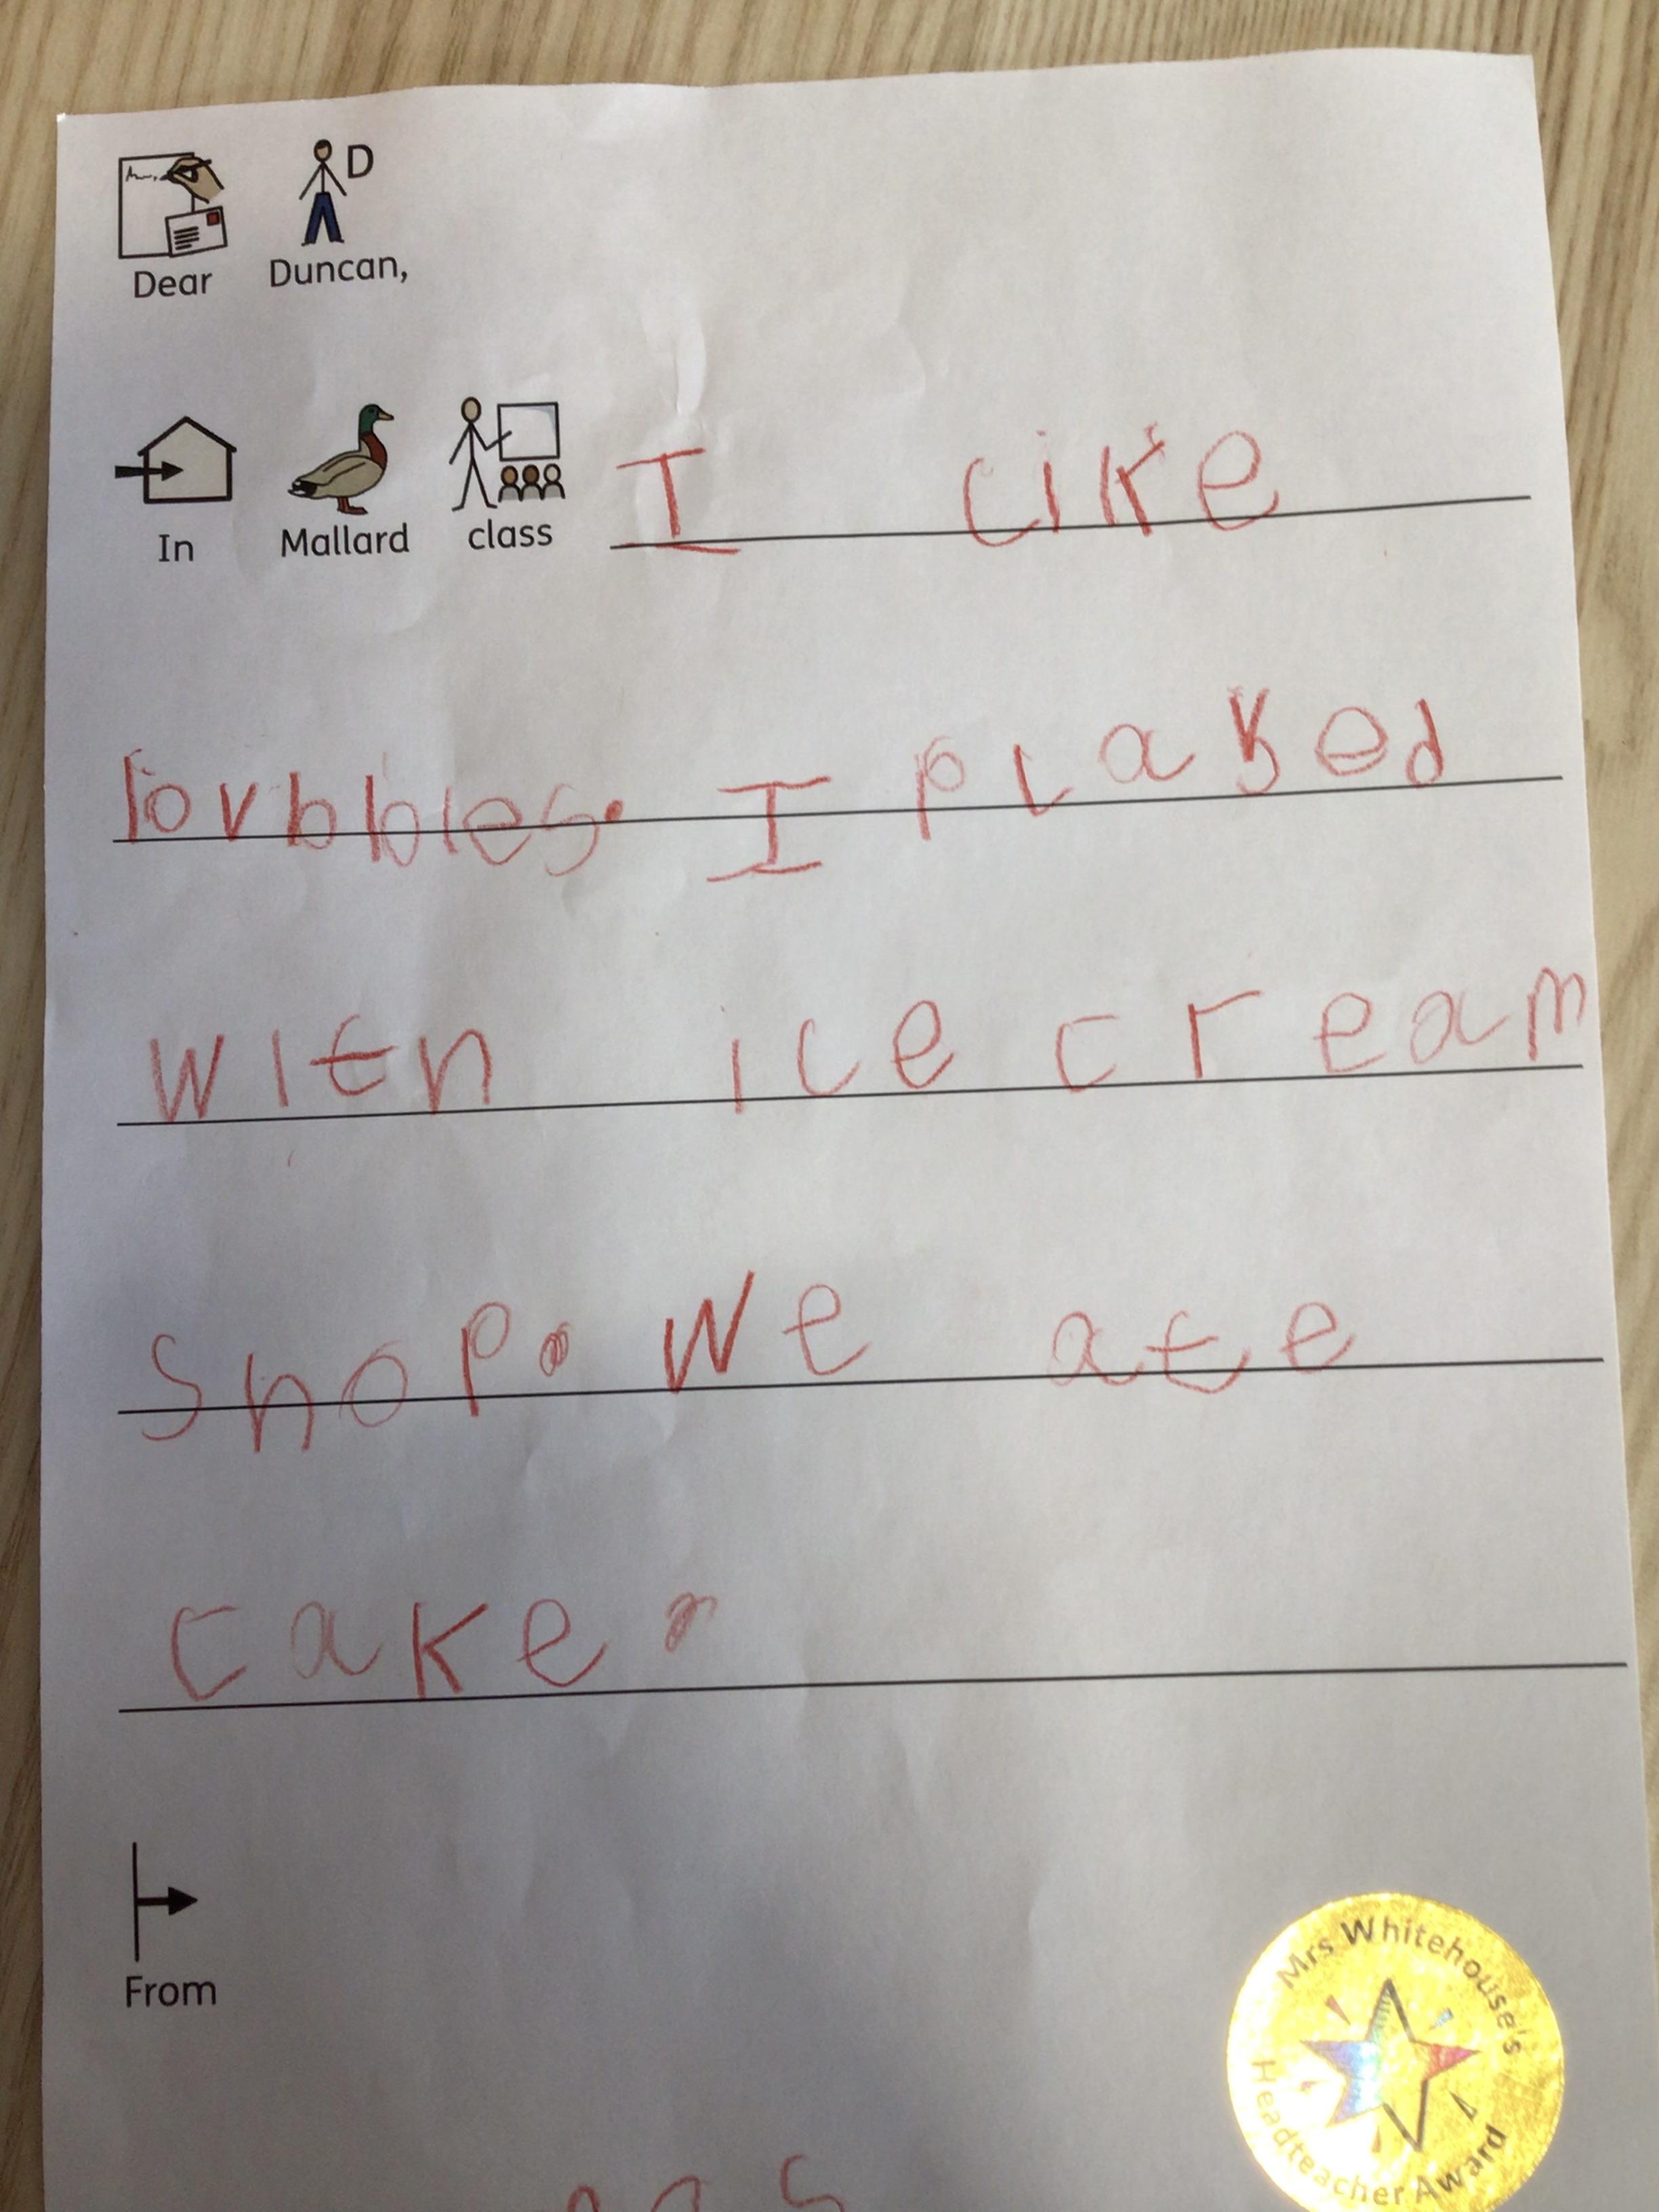 D
Dear Duncan,
In Mallard class I like
bubbles. I played
with ice cream
shop. We ate
cake.
From
Mrs Whitehouse's
Headteacher Award